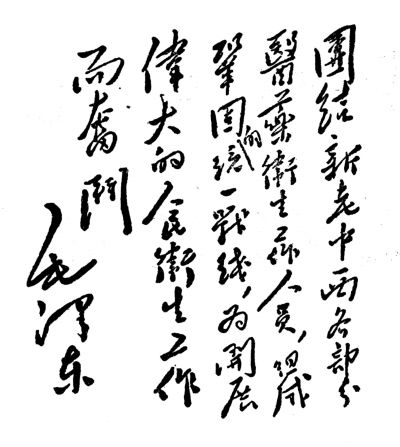 團結新老中西各部分
醫藥衛生工作人員，组成
鞏固的統一戰线，为開展
偉大的人民衛生工作
而奮鬥
毛泽东